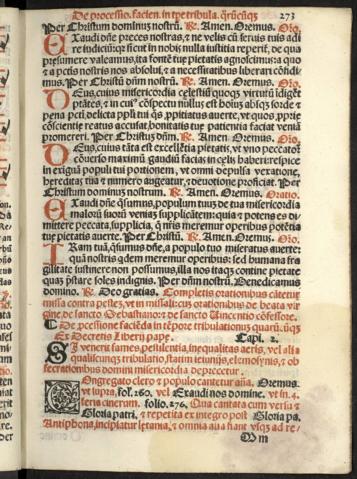 De processio. facien. in tpe tribula. qrūcūqz 273
Per Christum dominum nostrū. R. Amen. Oremus. Oro.
EXaudi dñe preces nostras, z ne velis cū seruis tuis adi
re iudiciū: qz sicut in nobis nulla iustitia reperit, de qua
presumere valeamus, ita fontē tue pietatis agnoscimus: a quo
z a pctis nostris nos absolui, z a necessitatibus liberari cōfidi-
mus. Per Christū dñm nostrū. R. Amen. Oremus. Oro.
DEus, cuius misericordia celestiū quoqz virtutū indiget
ptātes, z in cui' cōspectu nullus est hoīuz absqz sorde z
pena pcti, delicta ppli tui qs, ppitiatus auerte, vt quos, pprie
cōscientie reatus accusat, bonitatis tue patientia faciat veniā
promereri. Per Christus dñm. R. Amen. Oremus. Oro.
DEus, cuius tāta est excellētia pietatis, vt vno peccatore
cōuerso maximū gaudiū facias in celis haberi: respice
in exiguā populi tui portionem, vt omni depulsa vexatione,
hereditas tua z numero augeatur, z deuotione proficiat. Per
Christum dominum nostrum. R. Amen. Oremus. Oratio.
EXaudi dñe qsumus, populum tuuz de tua misericordia
malorū suorū veniaz supplicātem: quia z potens es di-
mittere peccata, supplicia, q nris meremur operibus potētia
tue pietatis auerte. Per Christū. R. Amen. Oremus. Oro.
IRam tuā, qsumus dñe, a populo tuo miseratus auerte:
quā nostris qdem meremur operibus: sed humana fra
gilitate sustinere non possumus, illa nos itaqz contine pietate
quaz pstare soles indignis. Per dñm nostrū. Benedicamus
domino. R. Deo gratias. Completis orationibus cātetur
missa contra pestez, vt in missali: cus orationibus de beata vir
gine, de sancto Sebastiano: z de sancto Vincentio cōfessore.
De pcessione faciēda in tēpore tribulationuz quarū. uqz
Ex Decretis Liberij pape. Capi. 2.
SI venerit fames, pestilentia, inequalitas aeris, vel alia
qualiscunqz tribulatio, statim ieiunijs, elemosynis, z ob
secrationibus domini misericordia deprecetur.
COngregato clero z populo cantetur aña. Oremus.
vt supra, fol. 260. vel Exaudi nos domine. vt in. 4.
feria cinerum. folio. 276. Qua cantata cum versu z
Gloria patri, z repetita ex integro post Gloria pa.
Antiphona, incipiatur letania, z omnia alia fiant vsqz ad re/
Mm